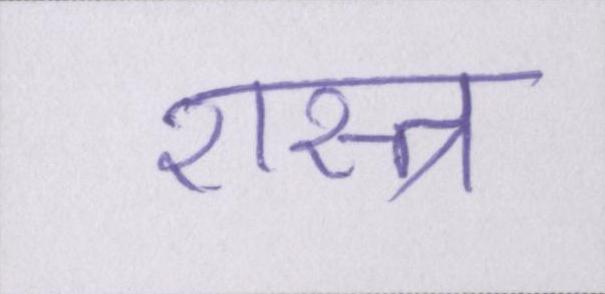 शस्त्र